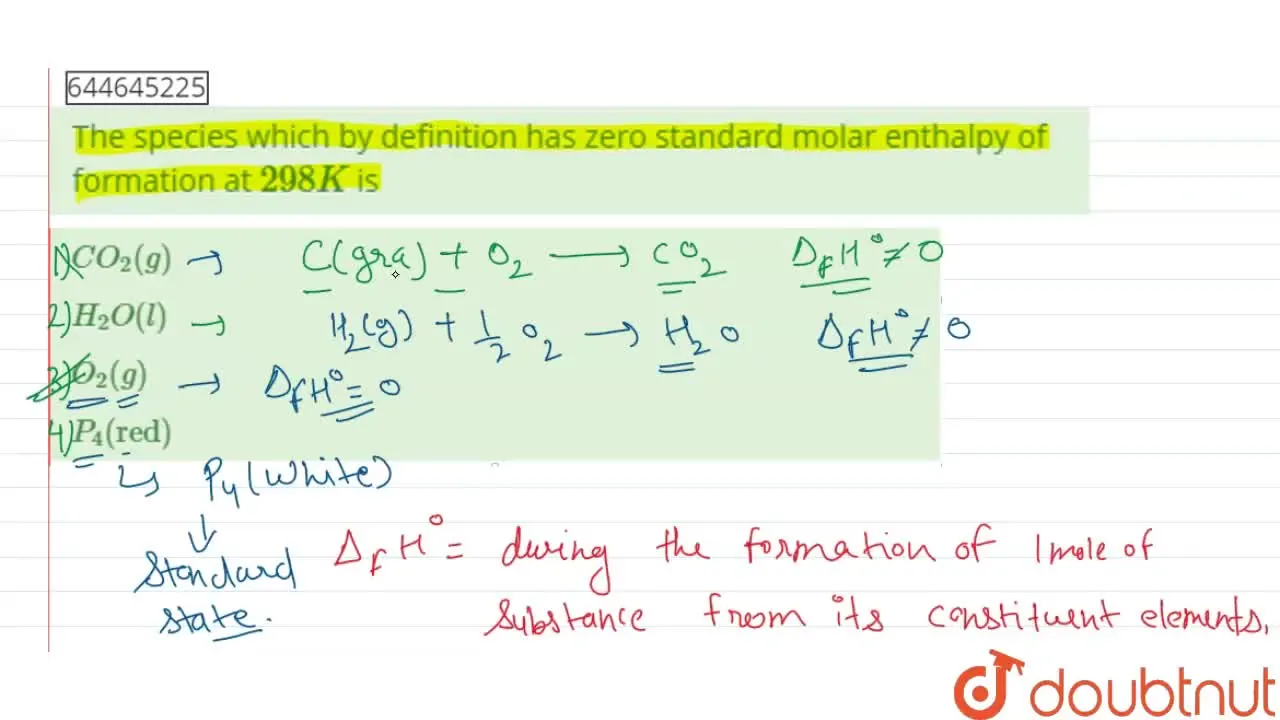 644645225
The species which by definition has zero standard molar enthalpy of
formation at 298K is
1) CO₂(g) → C(gra) + O₂ → CO₂ ΔfH° ≠ 0
2) H₂O(l) → H₂(g) + 1/2 O₂ → H₂O ΔfH° ≠ 0
3) O₂(g) → ΔfH° = 0
4) P₄(red)
↳ P₄(White)
↓
Standard
state.
ΔfH° = during the formation of 1 mole of
substance from its constituent elements.
doubtnut